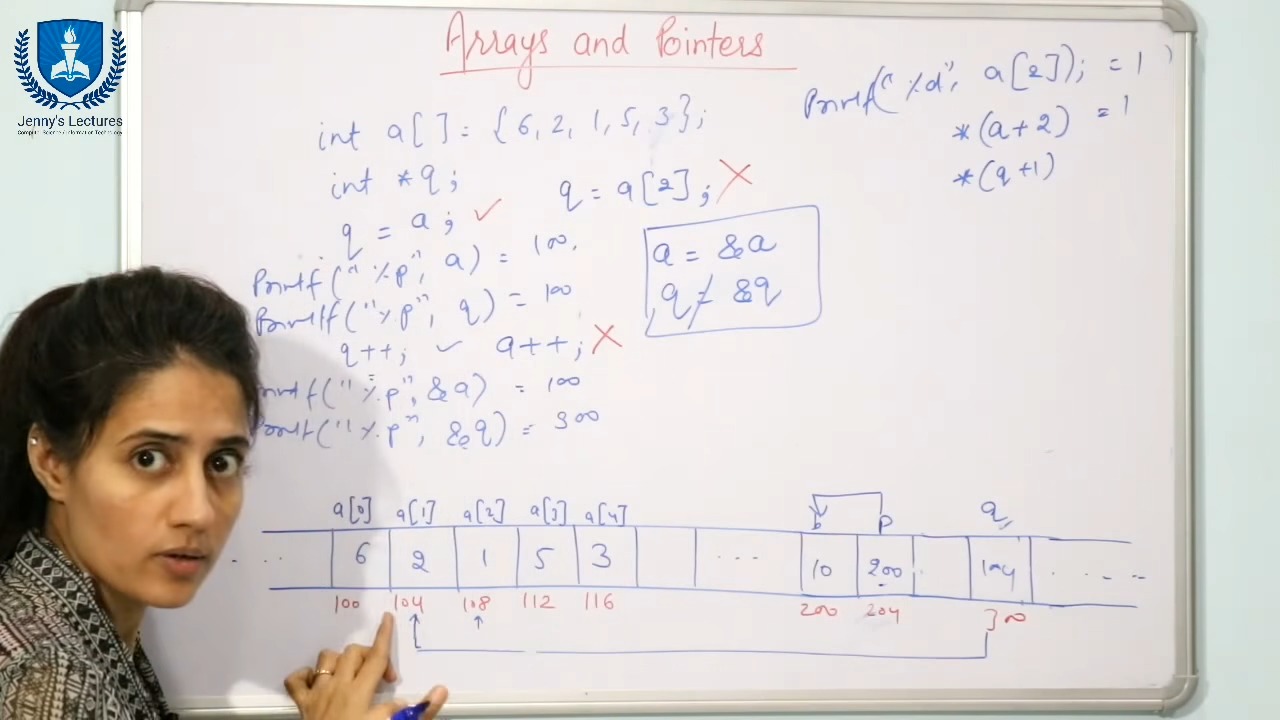 Jenny's Lectures
Computer Science/Information Technology
Arrays and Pointers
int a[ ] = {6, 2, 1, 5, 3};
int *q;
q = a[2];
q = a;
Printf("%p", a) = 100.
Printf("%p", q) = 100
q++;
a++;
Printf("%p", &a) = 100
Printf("%p", &q) = 300
a = &a
q ≠ &q
Printf("%d", a[2]); = 1
*(a+2) = 1
*(q+1)
a[0] a[1] a[2] a[3] a[4] b P q
6 2 1 5 3 ... 10 200 104
100 104 108 112 116 200 204 300